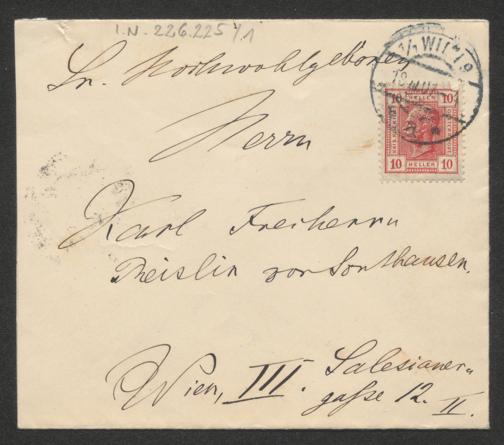 I.N. 226.225/1
Sr. Hochwohlgeboren
Herrn
Karl Freiherrn
von Sonthausen.
Wien, III. Salesianer=
gaße 12. II.
1/1 WIEN 9
10 HELLER 10
10 HELLER 10